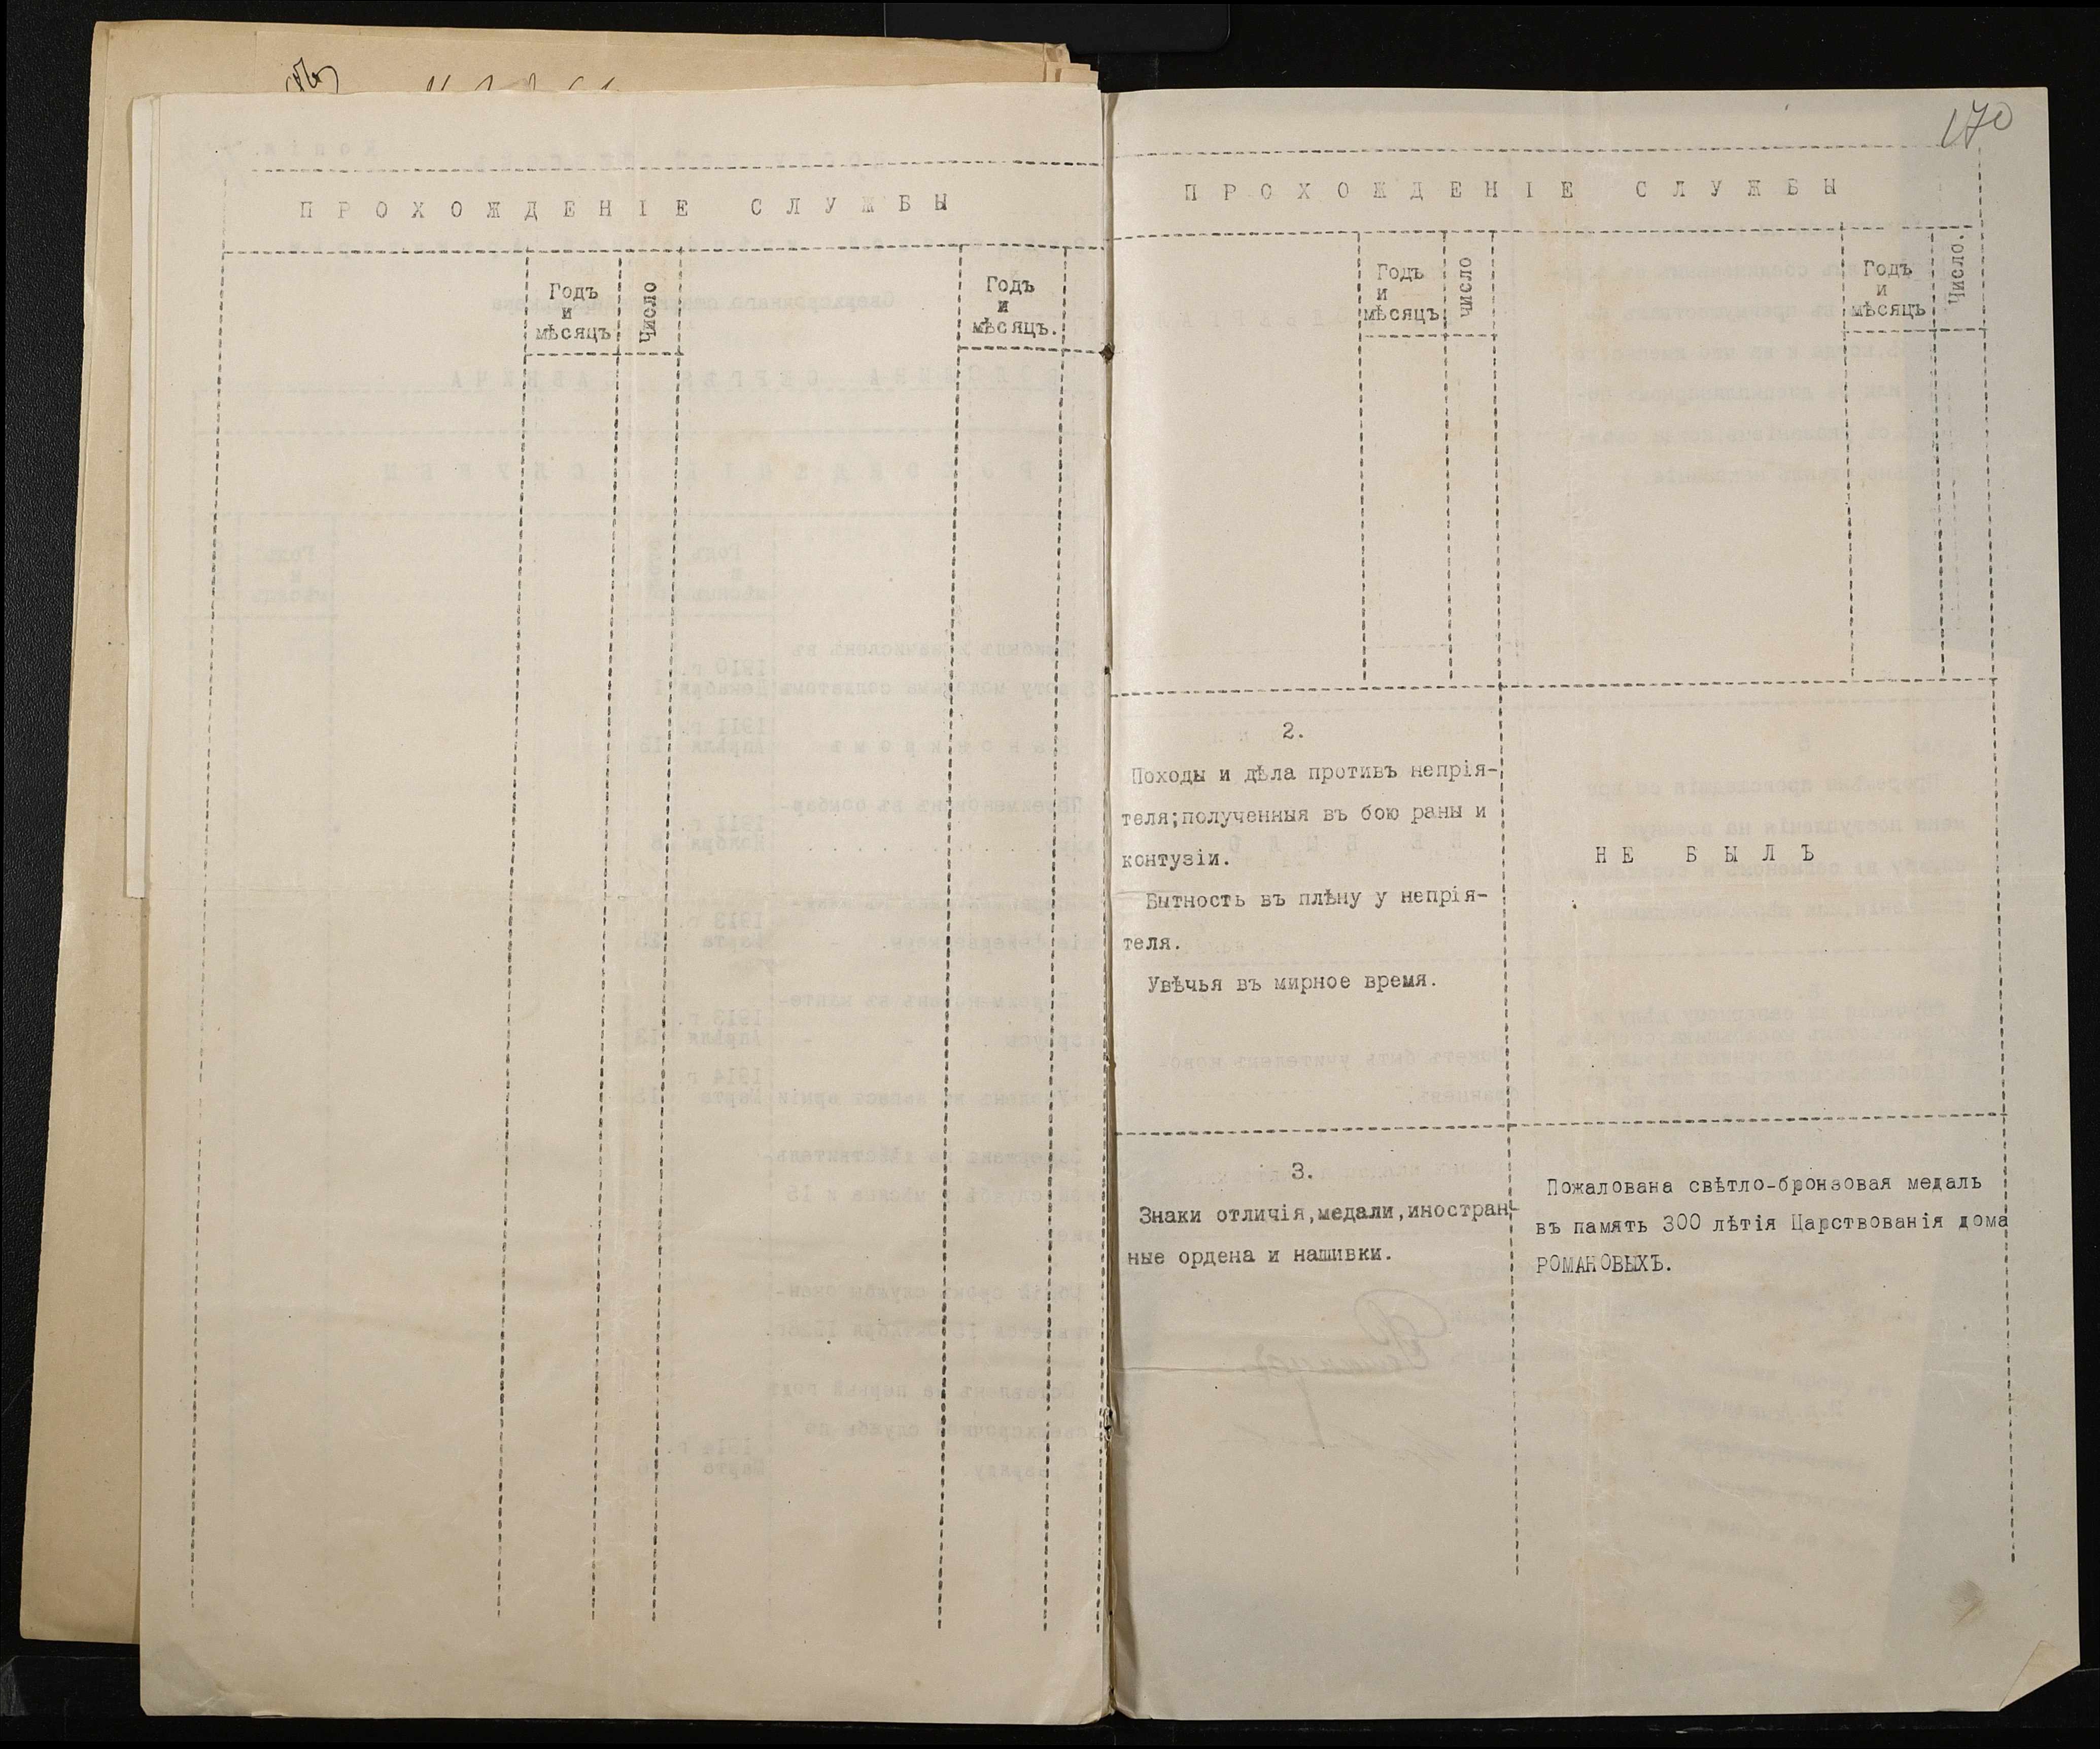 ПРОХОЖДЕНІЕ СЛУЖБЫ
Годъ
и
мѣсяцъ
Число
Годъ
и
мѣсяцъ.
170
ПРОХОЖДЕНІЕ СЛУЖБЫ
Годъ
и
мѣсяцъ
число
Годъ
и
мѣсяцъ
Число.
2.
Походы и дѣла противъ непрія-
теля;полученныя въ бою раны и
контузіи.
Бытность въ плѣну у непрія-
теля.
Увѣчья въ мирное время.
НЕ БЫЛЪ
3.
Знаки отличія,медали,иностран-
ные ордена и нашивки.
Пожалована свѣтло-бронзовая медаль
въ память 300 лѣтія Царствованія дома
РОМАНОВЫХЪ.